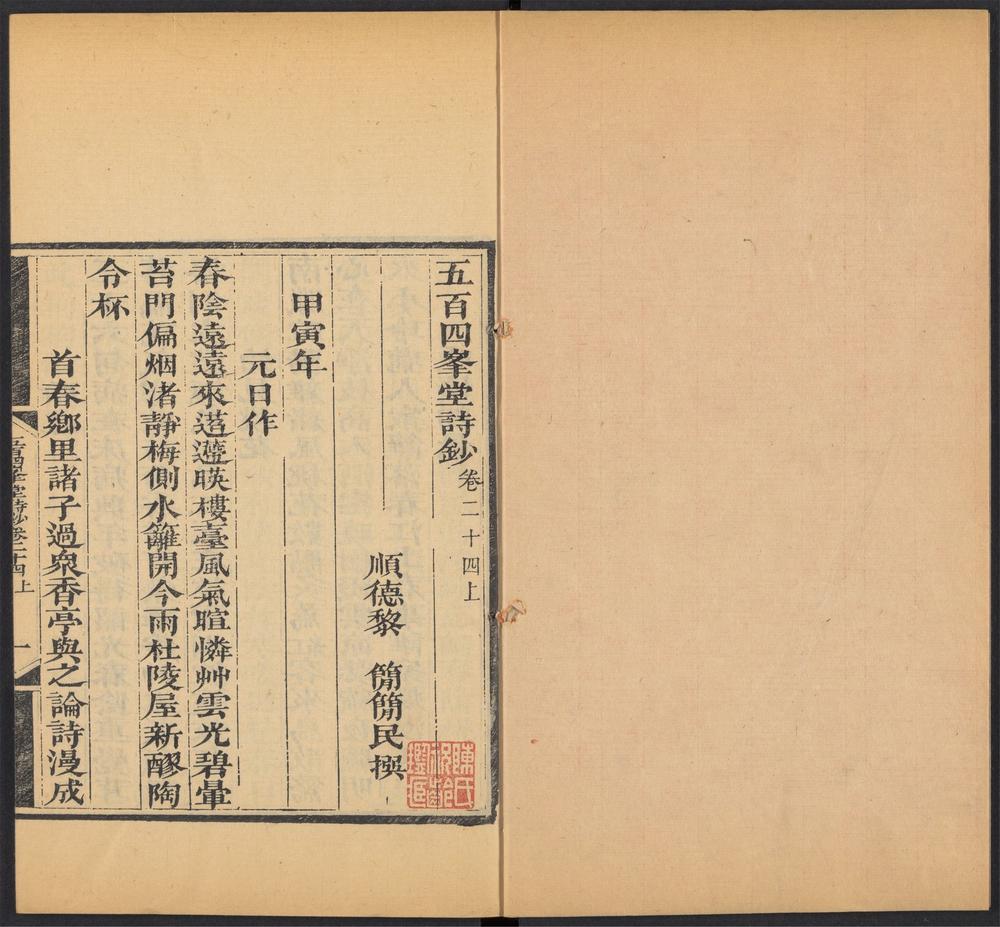 五百四峯堂詩鈔 卷二十四上
順德黎 簡簡民撰
甲寅年
元日作
春陰遠遠來遝遝暎樓臺風氣暄憐艸雲光碧暈
苔門偏烟渚靜梅側水籬開今雨杜陵屋新醪陶
令杯
首春鄉里諸子過衆香亭與之論詩漫成
五百四峯堂詩鈔卷二十四上
一
陳氏
鑑